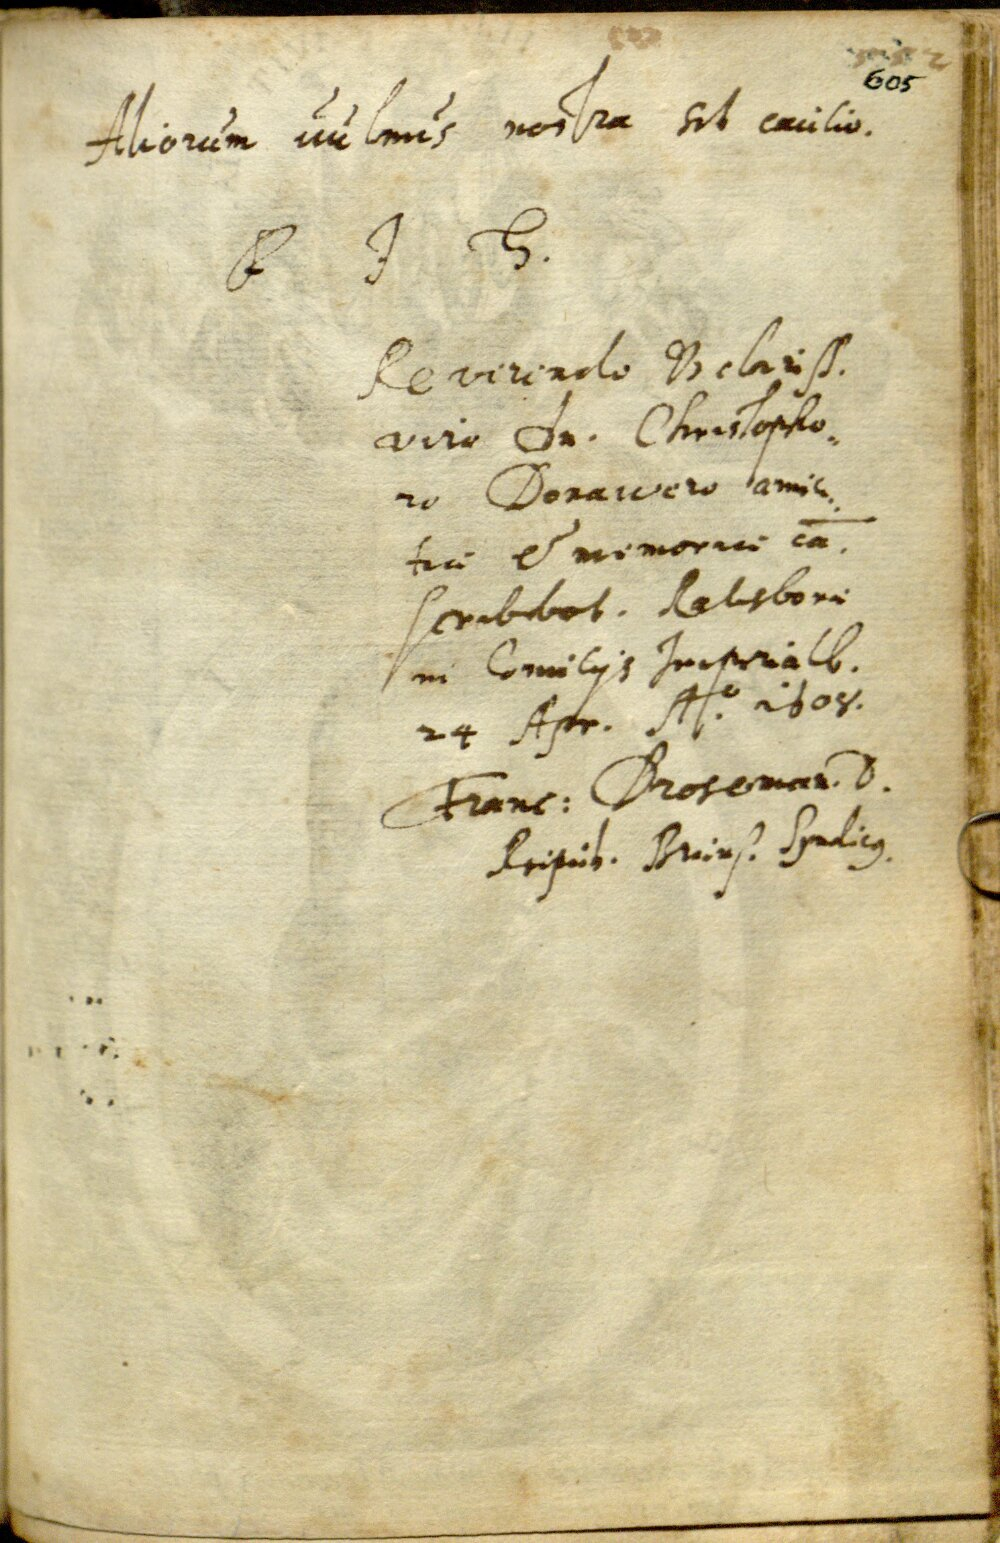 605
Aliorum vulnus nostra sit cautio.
R J H.
Reverendo & clariss.
viro Dn. Christopho-
ro Donawero amici-
tiae & memoriae ca.
scribebat. Ratisbonae
in Comitijs Imperialib.
24 Apr. Ao. 1608.
Franc: Droseman. D.
Reipub. Brems. Syndicg.